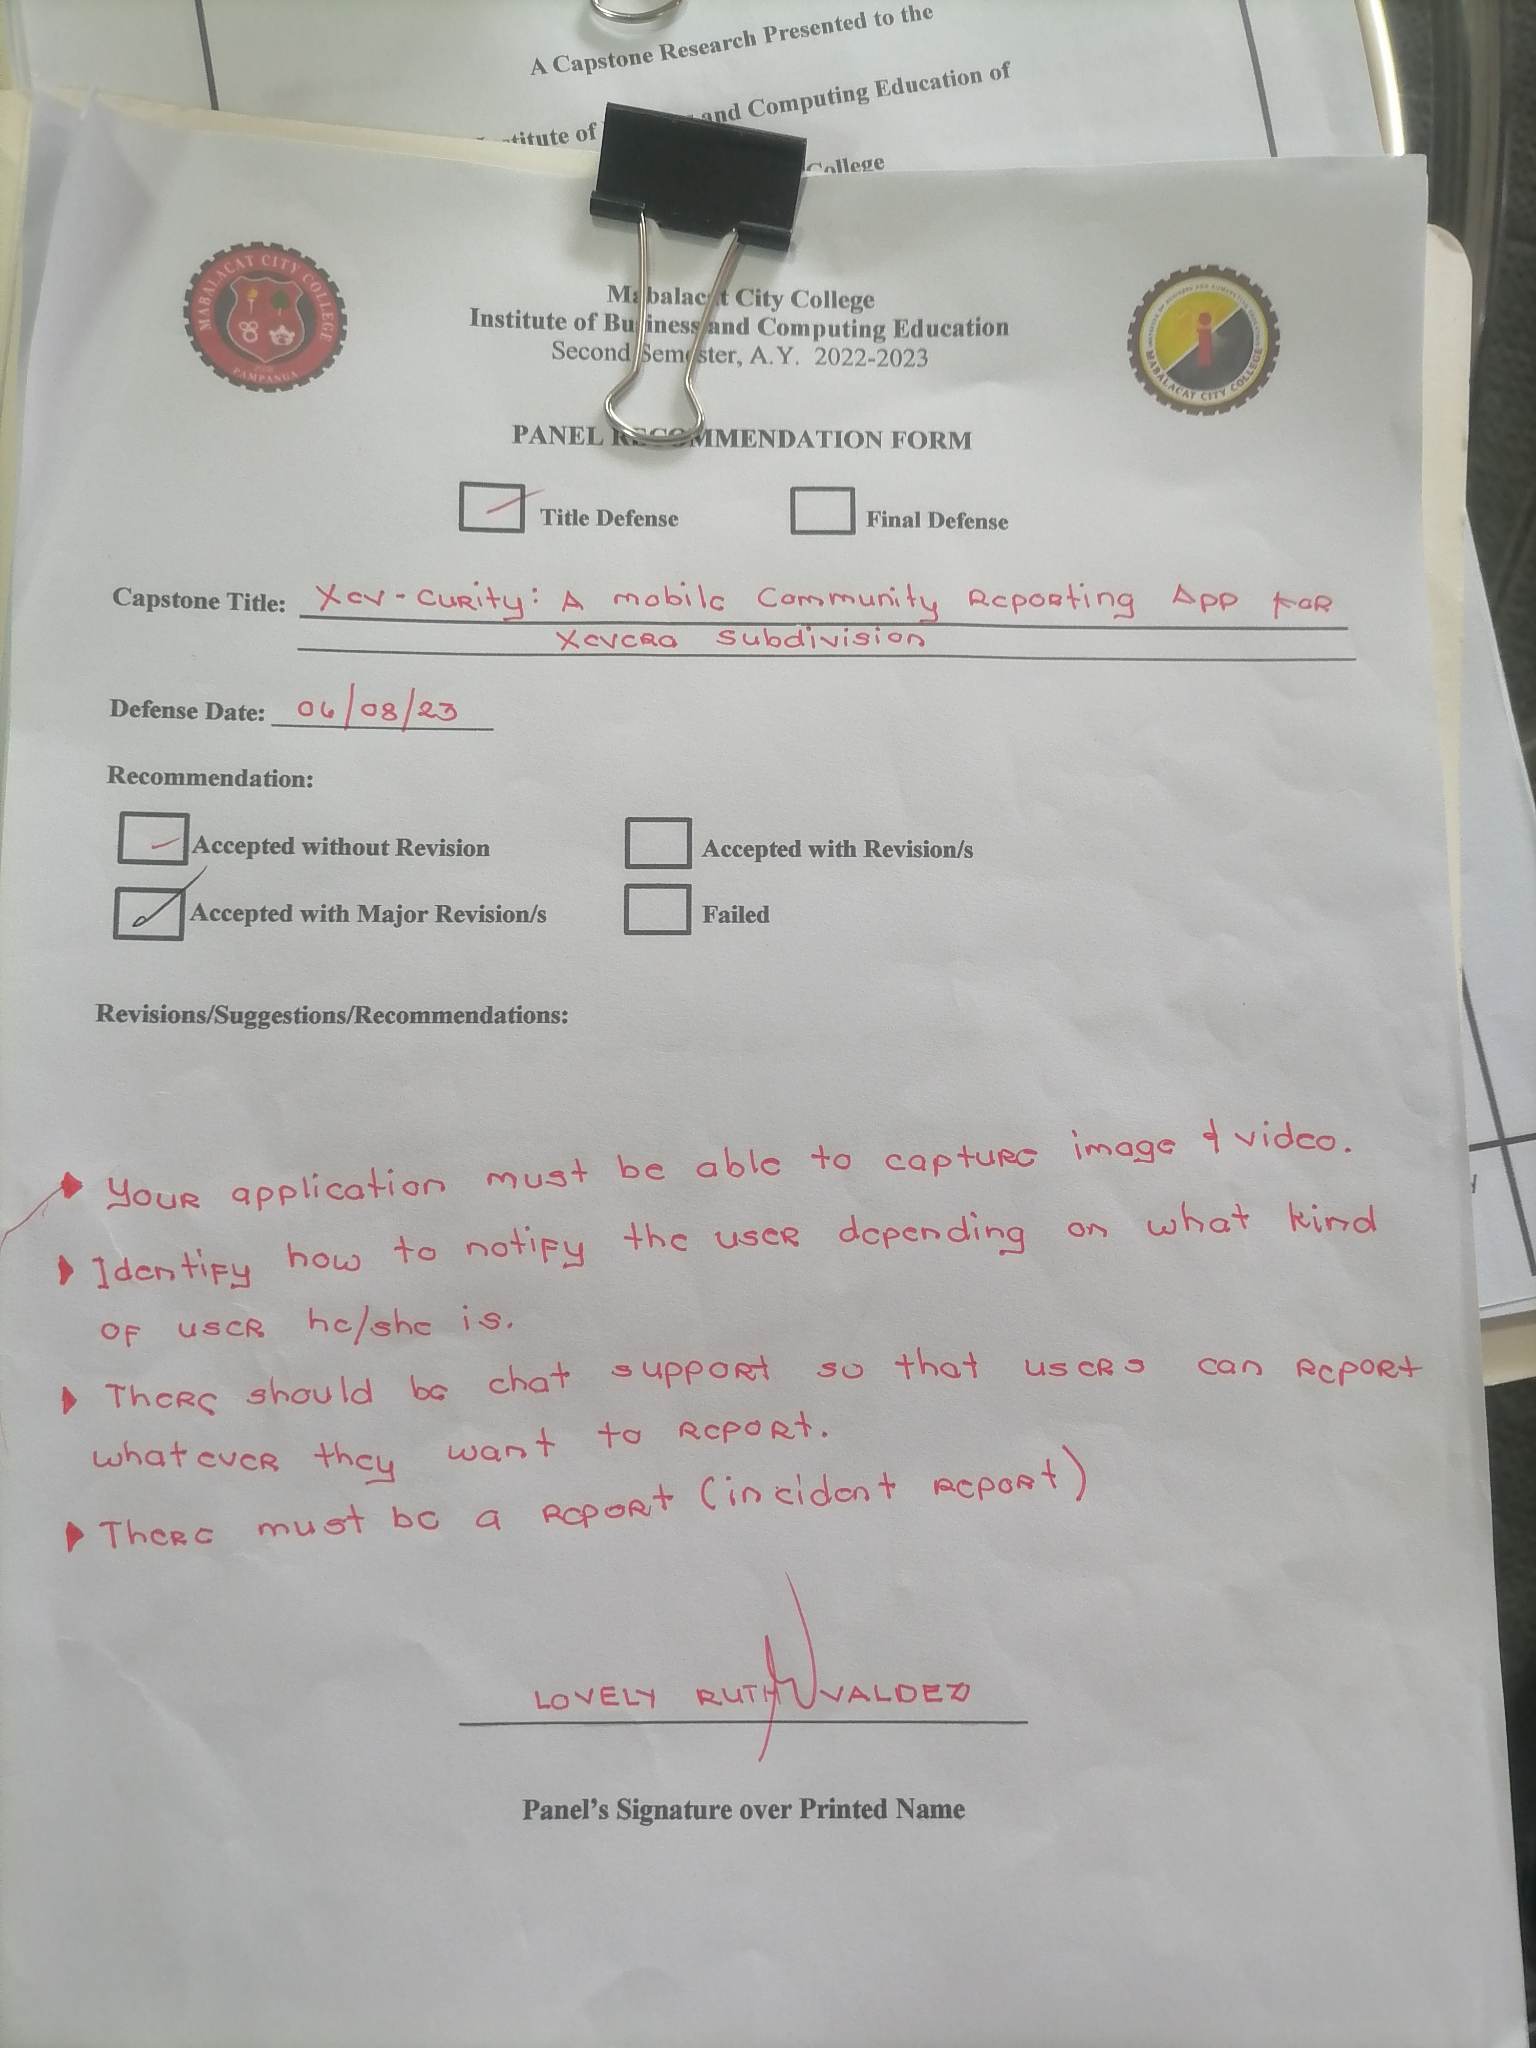 A Capstone Research Presented to the
and Computing Education of
College
MABALACAT CITY COLLEGE
PAMPANGA
MABALACAT CITY COLLEGE
Mabalacat City College
Institute of Business and Computing Education
Second Semester, A.Y. 2022-2023
PANEL RECOMMENDATION FORM
Title Defense Final Defense
Capstone Title: Xev-curity: A mobile Community Reporting App for
Xevera Subdivision
Defense Date: 06/08/23
Recommendation:
Accepted without Revision Accepted with Revision/s
Accepted with Major Revision/s Failed
Revisions/Suggestions/Recommendations:
Your application must be able to capture image & video.
Identify how to notify the user depending on what kind
of user he/she is.
There should be chat support so that users can report
whatever they want to report.
There must be a report (incident report)
LOVELY RUTH VALDEZ
Panel's Signature over Printed Name